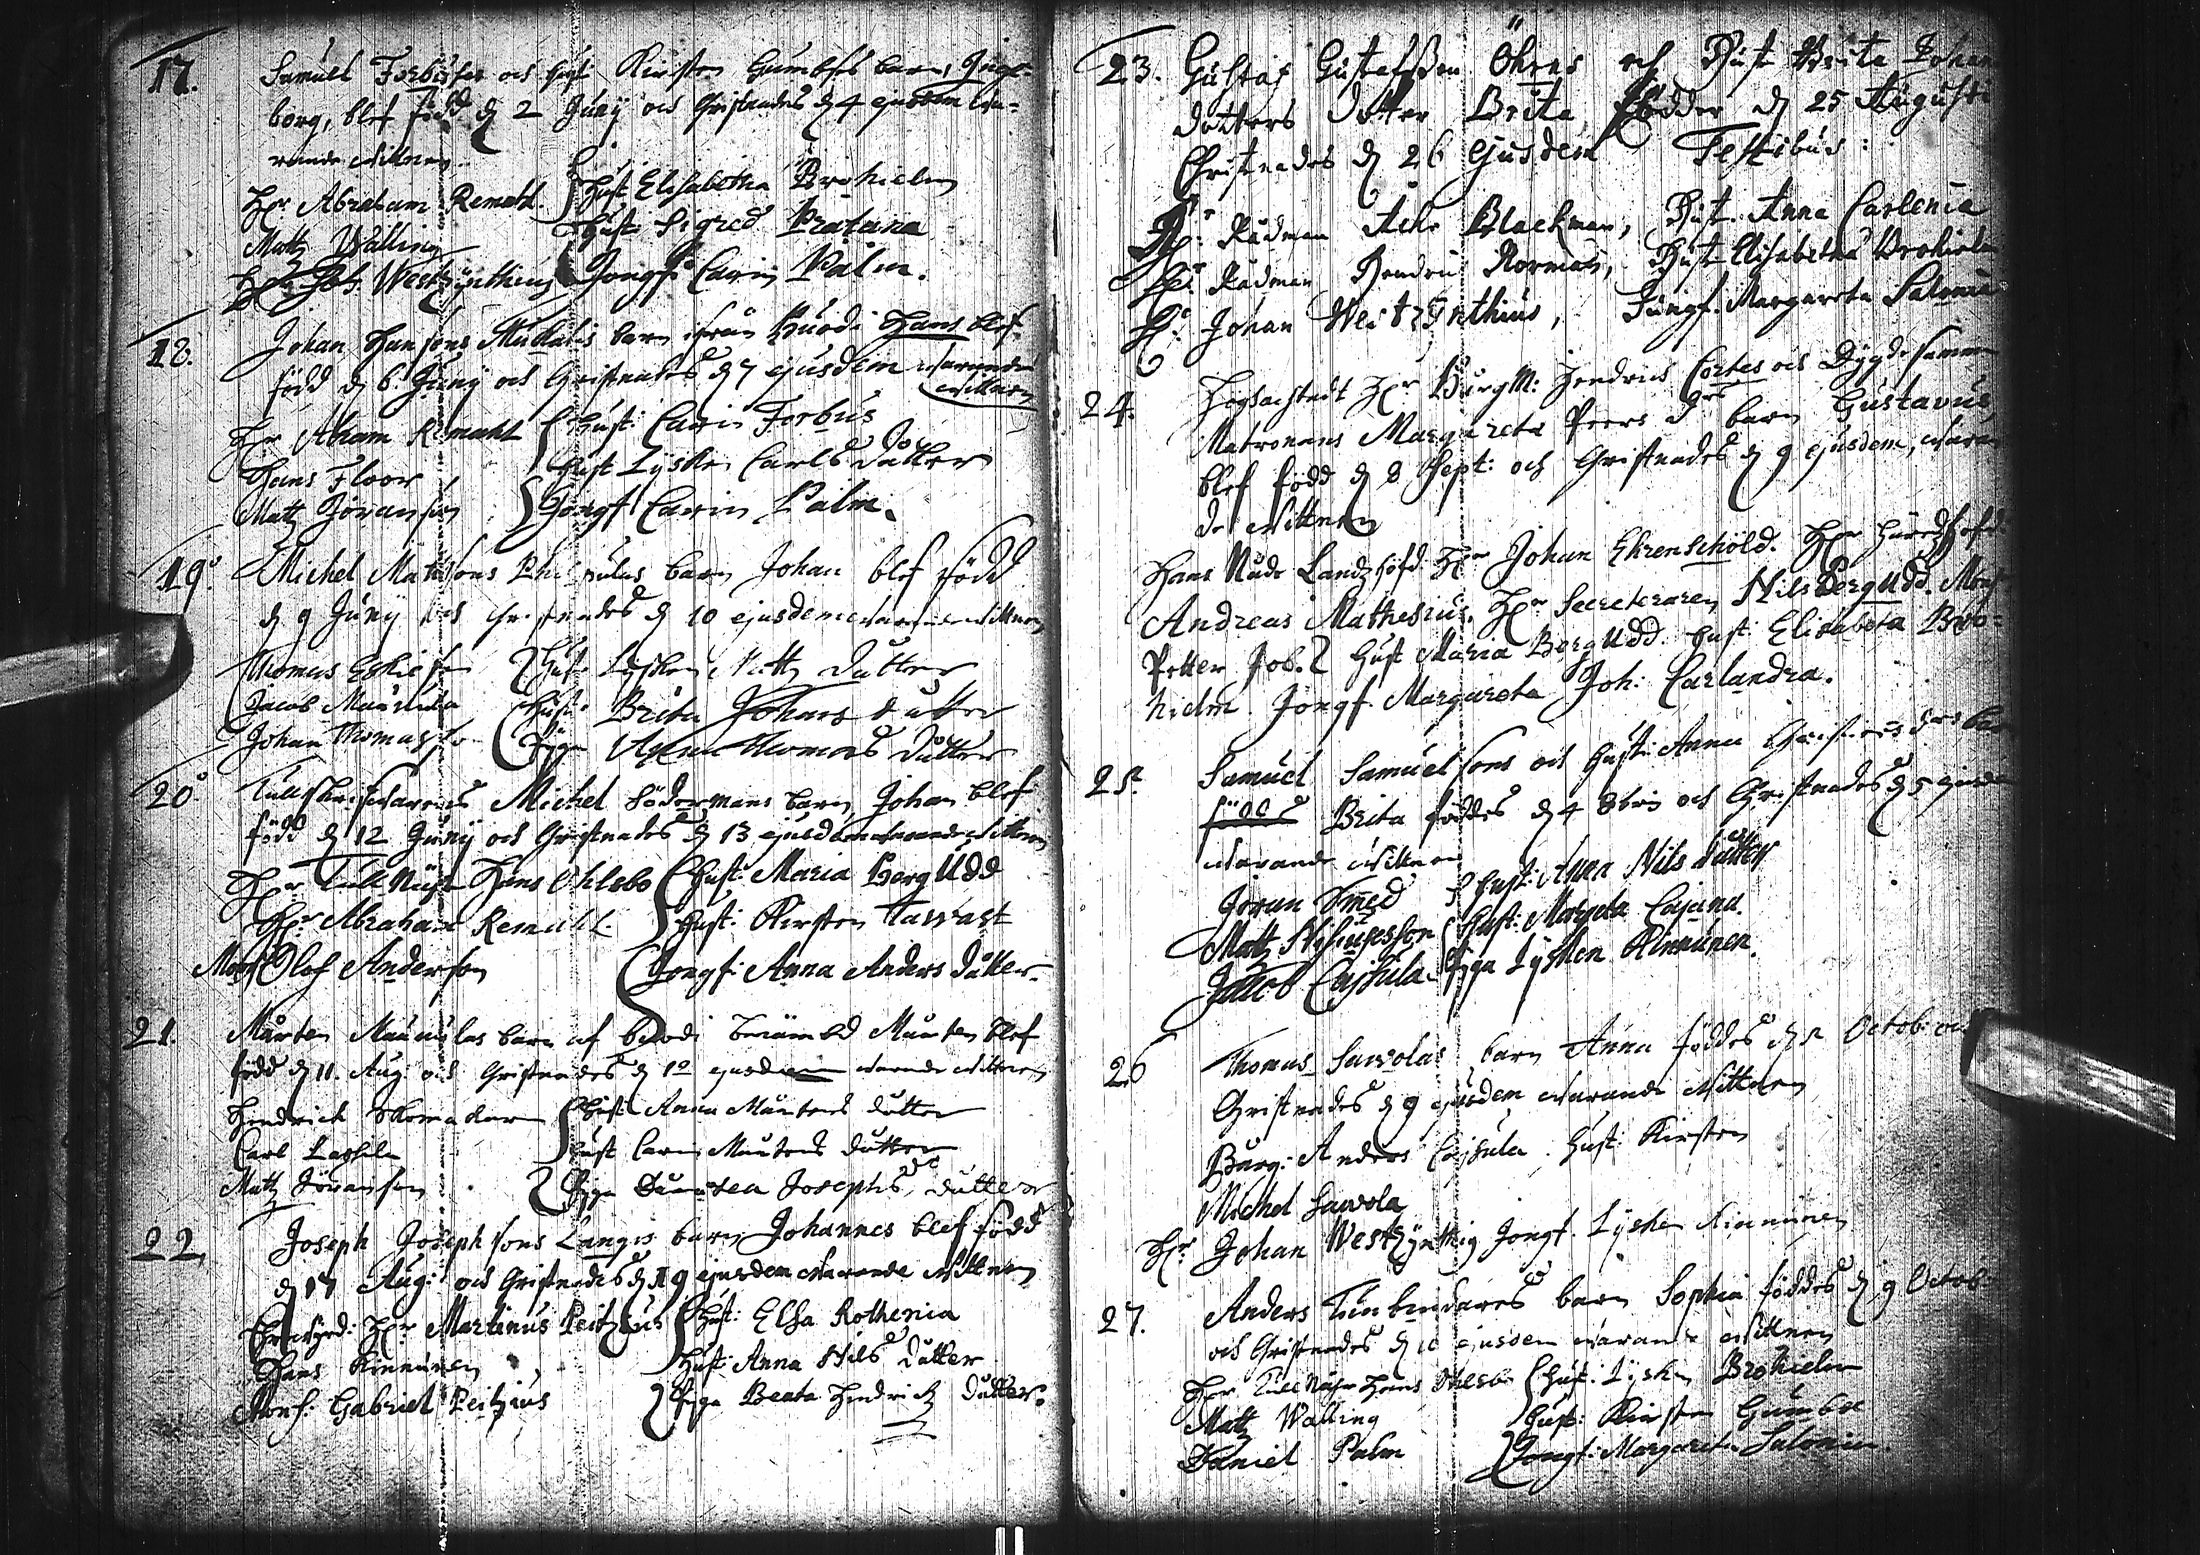 17. Samuel Forbuses och hust Kirsten Gumbses barn, Inge-
borg, blef född d 2 Juny och Christnades d 4 ejusdem wa-
rande wittnen
Hr Abraham Remahl. Hust Elisabetha Brohielm
Matz Walling Hust Sigred Pratana
Hr Joh. Westzynthius Jongf: Carin Palm.
18. Johan Hansons barn ifrån Hans blef
född d 6 Juny och Christnades d 7 ejusdem warande
wittnen
Hr Abram Remahl Hust: Carin Forbus
Hans Floor hust Lysken Carls dåtter
Matz Jöransson Jongf Carin Palm.
19. Michel Matssons barn Johan blef född
d 9 Juny och Christnades d 10 ejusdem warande wittnen
Thomas Eskilsson Hust Lysken Matz dåtter
Jacob Maunula Hust: Brita Johans dåtter
Johan Thomasson Piga Thomas dåtter
20. Michel Södermans barn Johan blef
född d 12 Juny och Christnades d 13 ejusdem warande wittnen
Hr Hans Ohlsbo Hust: Maria BergUdd
Hr Abraham Remahl. Hust: Kirsten Tawast
Mons Olof Anderson Jongf: Anna Anders dåtter
21. Mårten Maunulas barn af Mårten blef
född d 11. Aug: och Christnades d 12 ejusdem warande wittnen
Hendrich Skomakar Hust Anna Mårtens dåtter
Carl Hust Carin Mårtens dåtter
Matz Jöransson Piga Josephs dåtter
22. Joseph Josephsons Langis barn Johannes blef född
d 17 Aug: och Christnades d 19 ejusdem warande wittnen
Hr Martinus Peitzius Hust: Elsa Rothenia
Hans Kinnunen Hust: Anna Nils dåtter
Mons: Gabriel Peitzius Piga Beata Hendrichz dåtter.
23. Gustaf Gustafsson Öhrns och Hust Brita Johan
dotters dotter Brita födder d 25 Augusti
Christnades d 26 Ejusdem Testibus:
Hr: Rådman Blackman, Hust. Anna Carlenia
Hr: Rådman Hendric Hust Elisabetha Brohielm
Hr Johan Westzynthius, Jungf. Margareta Salonia
24. Hr BurgM: Hendrich Cortes och Dygdesamme
Matronans Margareta Peers drs barn Gustavus,
blef född d 8 Sept: och Christnades d 9 ejusdem, waran
de wittnen
Hans Nåde Landzhöfd: Hr Johan Ehrenschöld. Hr
Andreas Mathesius, Hr Secreteraren Nils BergUdd. Mons
Petter Job. Hust Maria BergUdd. hust: Elisabeta Bro-
hielm. Jongf. Margareta Joh: Carlandra.
25. Samuel Samuelsons och hust: Anna barn
född Brita föddes d 4 8bris och Christnades d 5 ejusdem
warande wittnen
Jöran Smed Hust: Anna Nils dåtter
Matz Hust: Margeta Cajana.
Jacob Cajsula Piga Lysken Kinnunen.
26 Thomas Sawolas barn Anna föddes d Octob: och
Christnades d 9 ejusdem warande wittnen
Burg: Anders Cajsula. Hust: Kirsten
Michel Sawola
Hr Johan Westzynthius Jongf. Lysken Kinnunen
27. Anders barn Sophia föddes d 9 Octob:
och Christnades d 10 ejusdem warande wittnen
Hr Hans Ohlsbo Hust: Lysken Brohielm
Matz Walling Hust: Kirsten Gumbse
Daniel Palm Jongf: Margareta Salonia.